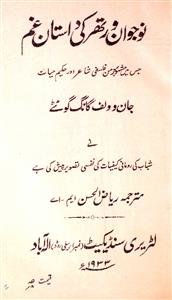 نوجوان ورتھر کی داستان غم
جس میں مشہور جرمن فلسفی شاعر اور حکیم حیات
جان وولف گانگ گوئٹے
نے
شباب کی رومانی کیفیات کی نفسی تصویر پیش کی ہے
مترجمہ ریاض الحسن ایم۔اے
لٹریری سنڈیکیٹ الہ آباد
۱۹۳۳ء
قیمت